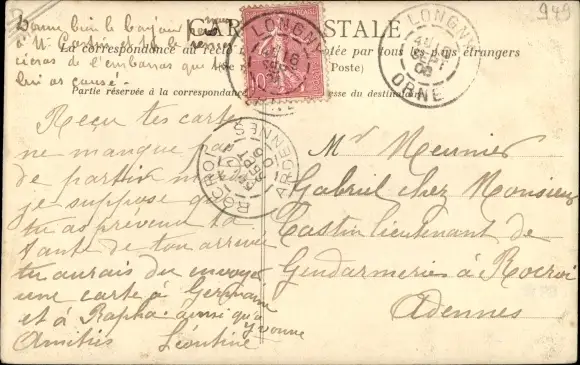 949
Donne bien le bonjour
à Mr Castin et Me le remer
cieras de l'embarras que
lui as causé.
CARTE POSTALE
La correspondance au recto n'est pas acceptée par tous les pays étrangers
(Se renseigner à la Poste)
Partie réservée à la correspondance Adresse du destinataire
LONGNY
ORNE
LONGNY
ROCROI
ARDENNES
10
Reçu tes cartes
ne manque pas
de partir
je suppose que
tu as prévenu ta
tante de ton arrivée
tu aurais du envoyé
une carte à Germaine
et à Rapha. ainsi qu'a
Yvonne
Amitiés Léontine
Mr Meunier
Gabriel chez Monsieur
Castin lieutenant de
Gendarmeries à Rocroi
Adennes